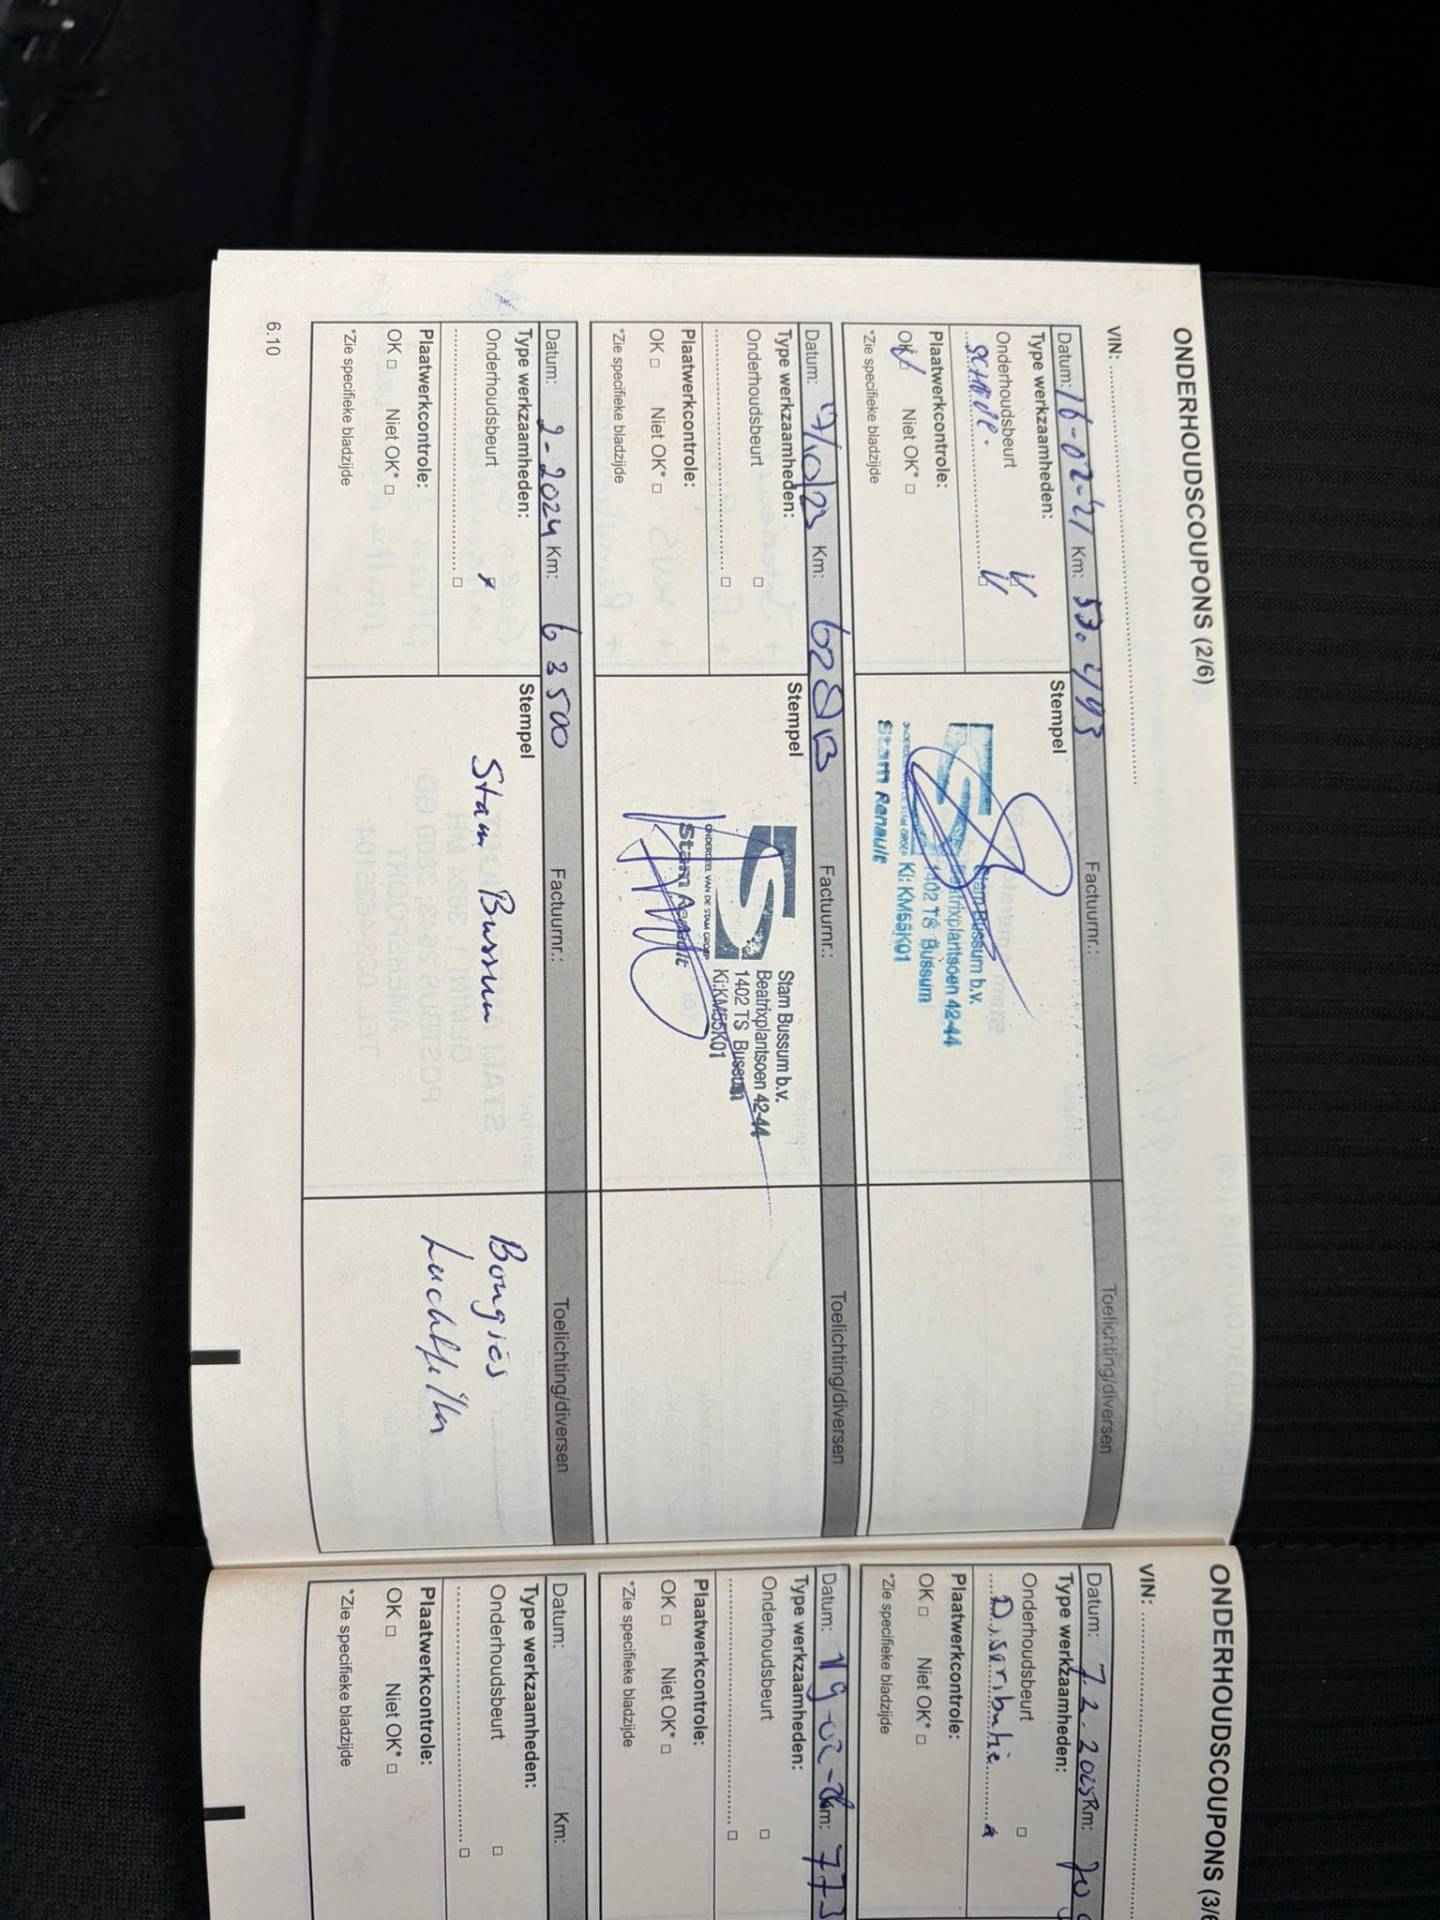 ONDERHOUDSCOUPONS (2/6)
VIN:
Datum: 16-02-21 Km: 53.493 Factuurnr.: Toelichting/diversen
Type werkzaamheden: Stempel
Onderhoudsbeurt
schade.
Plaatwerkcontrole:
OK Niet OK*
*Zie specifieke bladzijde
Stam Bussum b.v.
Beatrixplantsoen 42-44
1402 TS Bussum
KI: KM55K01
Stam Renault
Datum: /10/23 Km: Factuurnr.: Toelichting/diversen
Type werkzaamheden: Stempel
Onderhoudsbeurt
Plaatwerkcontrole:
OK Niet OK*
*Zie specifieke bladzijde
Stam Bussum b.v.
Beatrixplantsoen 42-44
1402 TS Bussum
KI:KM55K01
ONDERDEEL VAN DE STAM GROEP
Stam
Datum: 2-2024 Km: 63500 Factuurnr.: Toelichting/diversen
Type werkzaamheden: Stempel
Onderhoudsbeurt
Plaatwerkcontrole:
OK Niet OK*
*Zie specifieke bladzijde
Stam Bussum
Bougiës
Luchtfilter
6.10
ONDERHOUDSCOUPONS (3/6
VIN:
Datum: 7.2.2025 Km: 70
Type werkzaamheden:
Onderhoudsbeurt
Distributie
Plaatwerkcontrole:
OK Niet OK*
*Zie specifieke bladzijde
Datum: 19-02- Km: 773
Type werkzaamheden:
Onderhoudsbeurt
Plaatwerkcontrole:
OK Niet OK*
*Zie specifieke bladzijde
Datum: Km:
Type werkzaamheden:
Onderhoudsbeurt
Plaatwerkcontrole:
OK Niet OK*
*Zie specifieke bladzijde